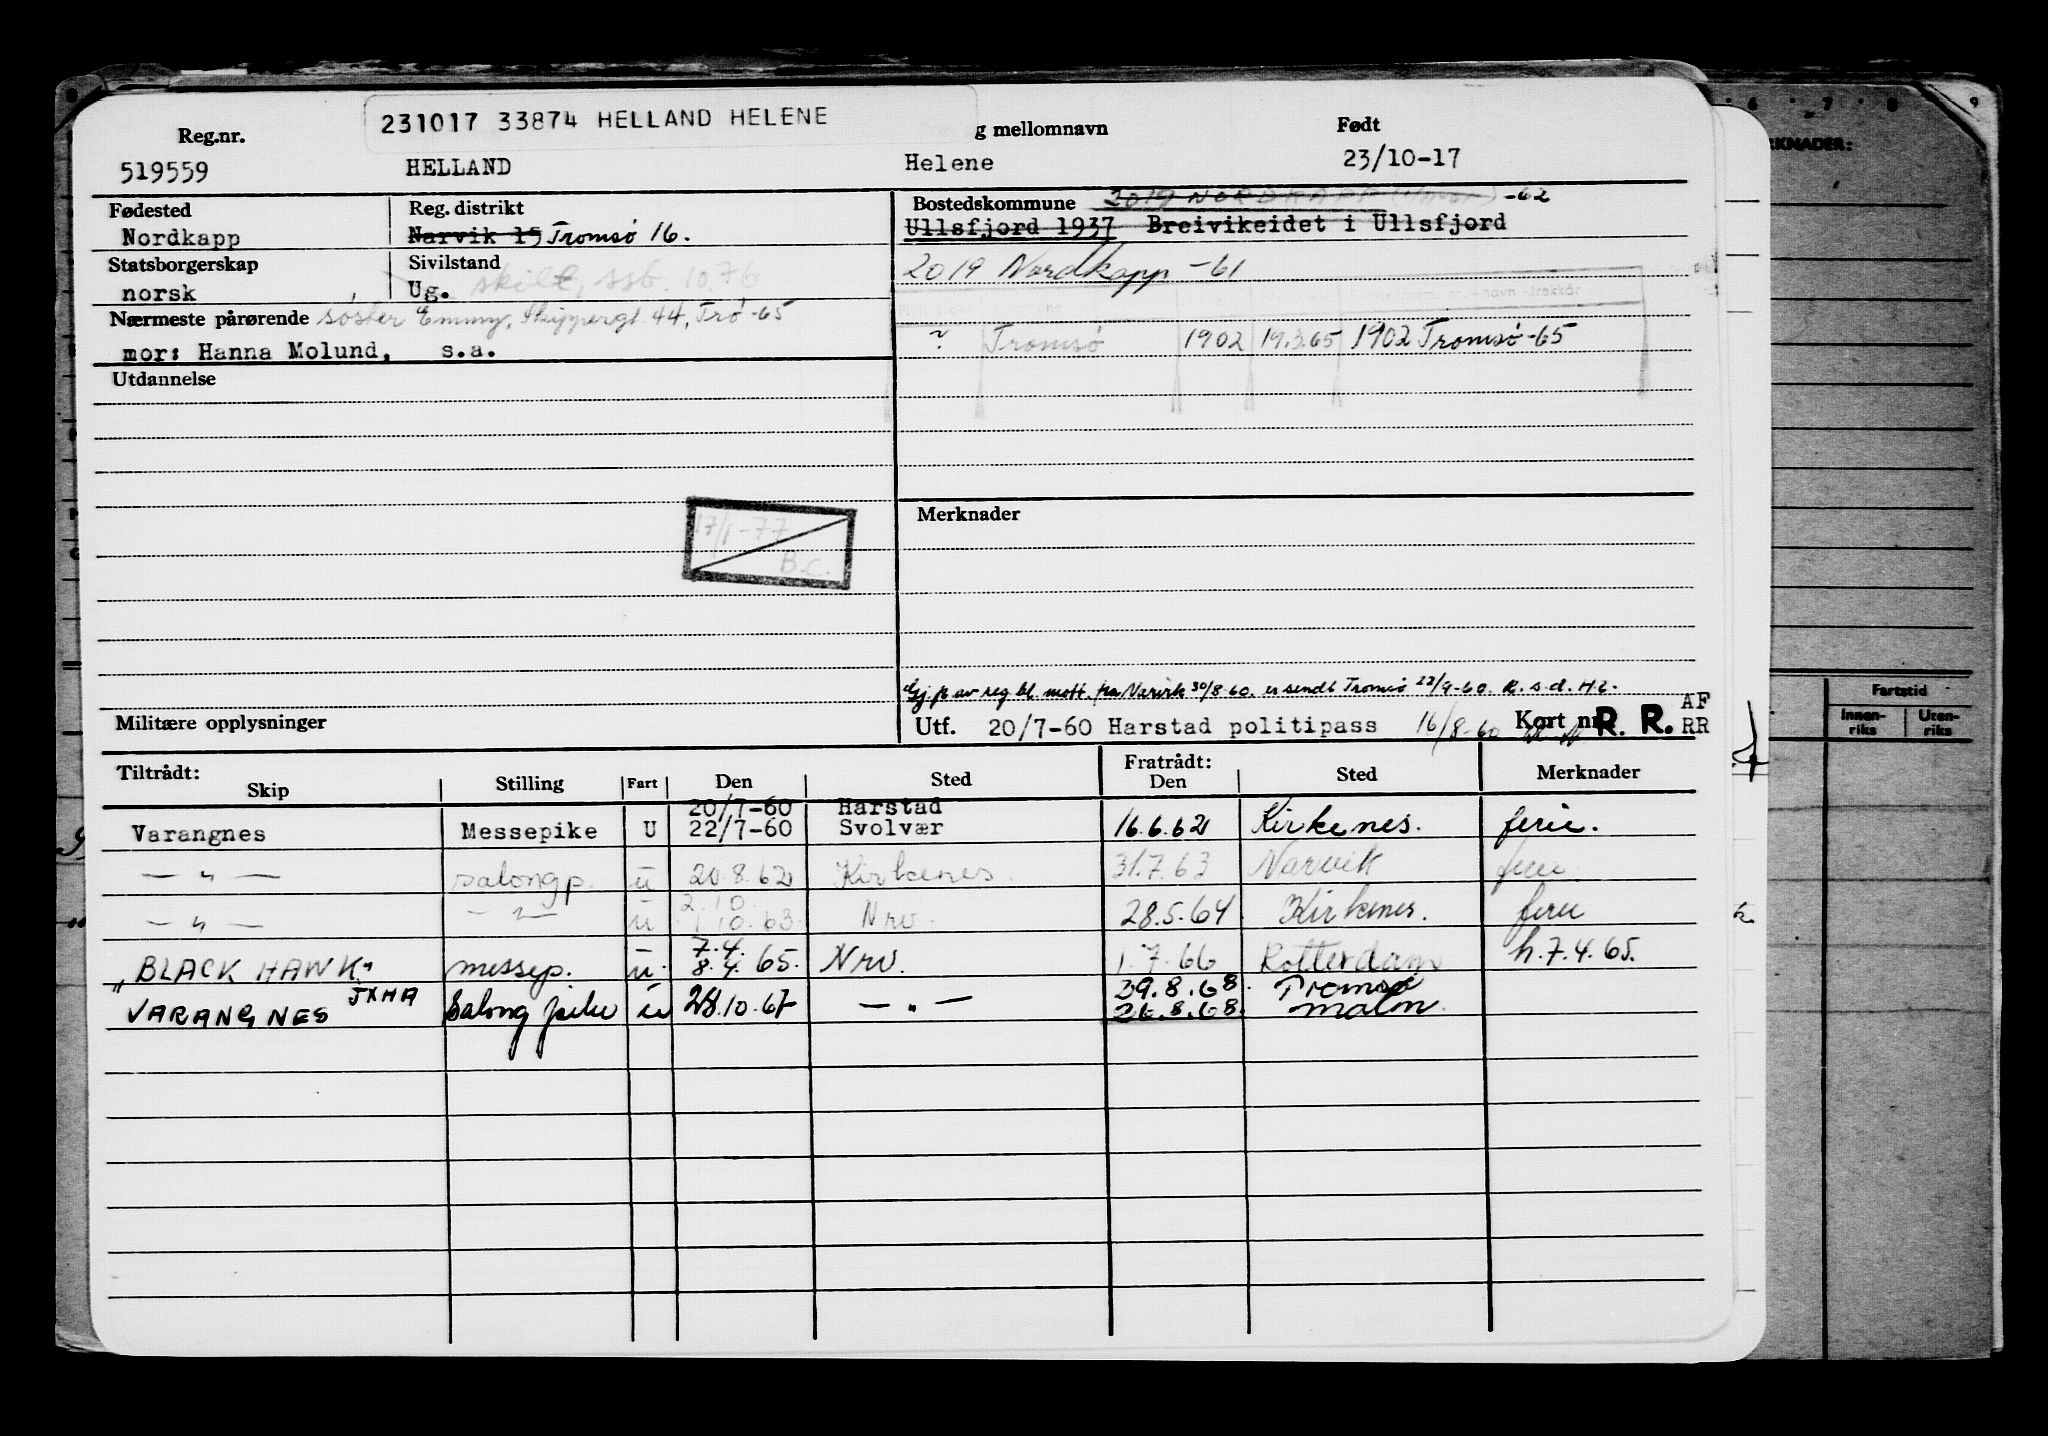 231017 33874 HELLAND HELENE
Reg.nr. g mellomnavn Født
519559 HELLAND Helene 23/10-17
Fødested Reg. distrikt Bostedskommune 2019 NORDKAPP -62
Nordkapp Narvik 15 Tromsø 16. Ullsfjord 1937 Breivikeidet i Ullsfjord
Statsborgerskap Sivilstand 2019 Nordkapp -61
norsk Ug. skilt, ssb. 10.76
Nærmeste pårørende søster Emmy, Skippergt. 44, Trø -65
mor: Hanna Molund, s.a. Tromsø 1902 19.3.65 1902 Tromsø -65
Utdannelse
17/1-77
B.C.
Merknader
Gj.p. av reg.bl. mott. fra Narvik 30/8-60. er sendt Tromsø 22/9-60. R.s.d. H.L.
Militære opplysninger Utf. 20/7-60 Harstad politipass 16/8-60 Kort nr. R. R. AF
RR
Tiltrådt: Fratrådt:
Skip Stilling Fart Den Sted Den Sted Merknader
20/7-60 Harstad
Varangnes Messepike U 22/7-60 Svolvær 16.6.62 Kirkenes. ferie.
— " — salongp. u 20.8.62 Kirkenes. 31.7.63 Narvik ferie
2.10.
— " — — " — u 1.10.63 Nrv. 28.5.64 Kirkenes. ferie
7.4.
"BLACK HAWK" messep. u. 8.4.65. Nrv. 1.7.66 Rotterdam h.7.4.65.
JXHA 29.8.68. Tromsø
VARANGNES Salong pike u 28.10.67 — " — 26.8.68. malm.
KNADER:
Fartstid
Innen-
riks
Uten-
riks
6 7 8 9